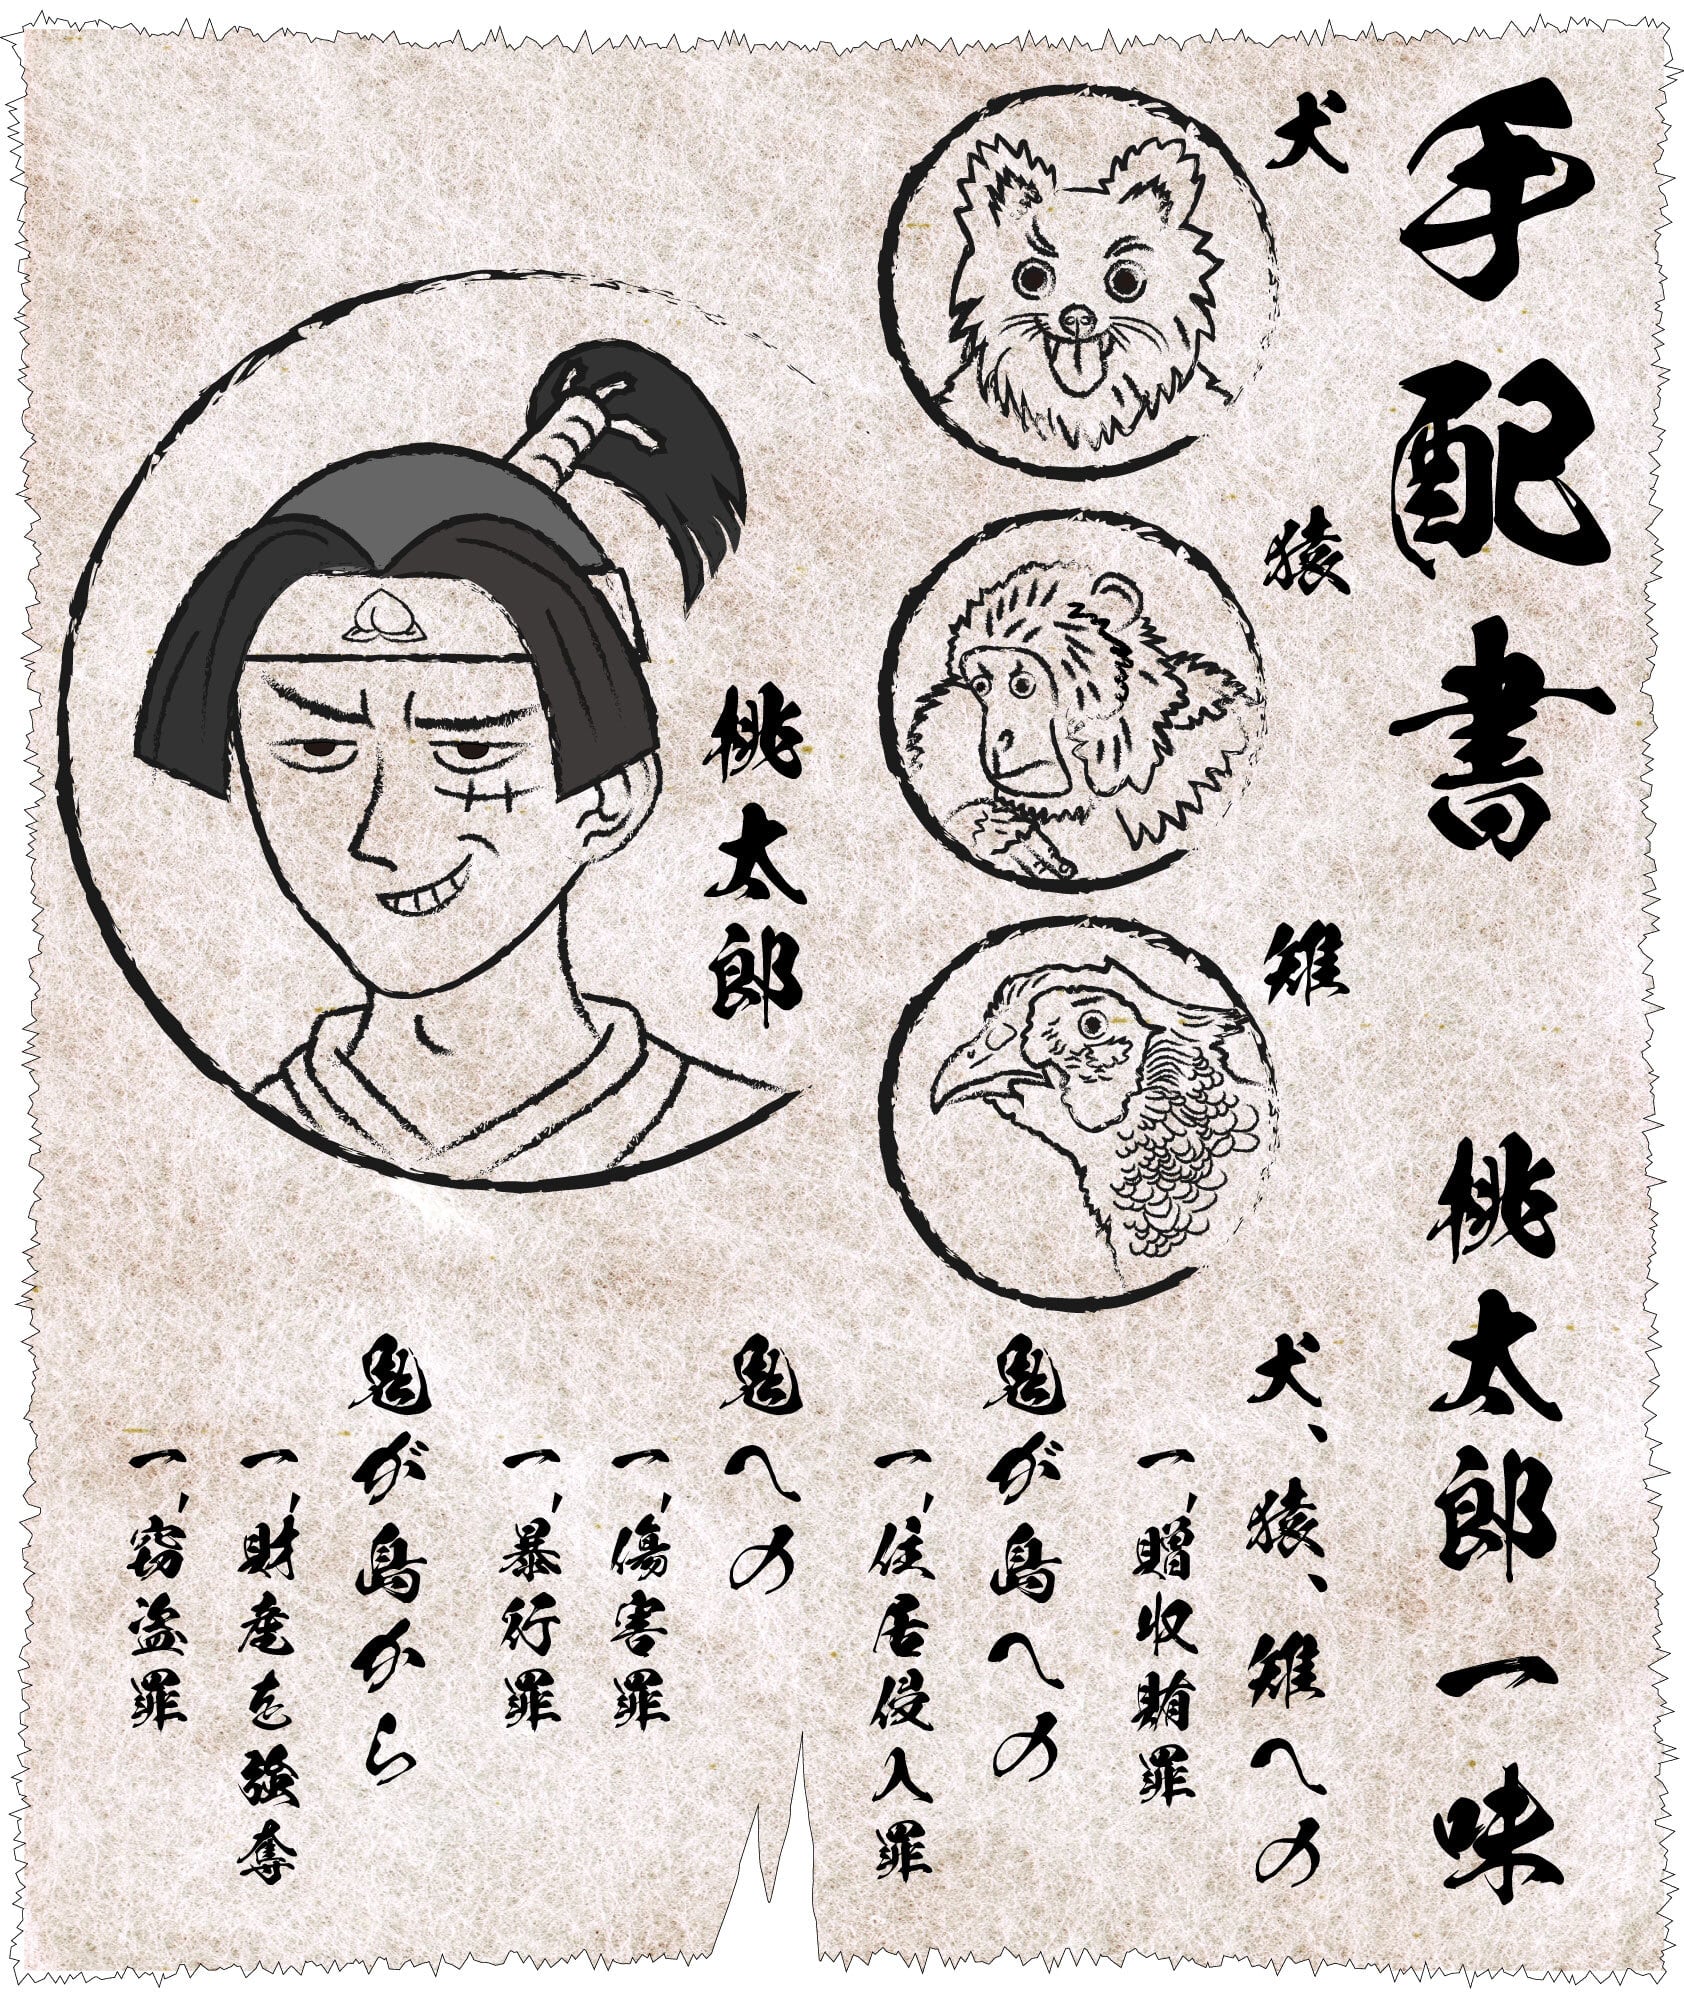 手配書 桃太郎一味
犬
猿
雉
桃太郎
犬、猿、雉への
一、贈収賄罪
鬼が島への
一、住居侵入罪
鬼への
一、傷害罪
一、暴行罪
鬼が島から
一、財産を強奪
一、窃盗罪